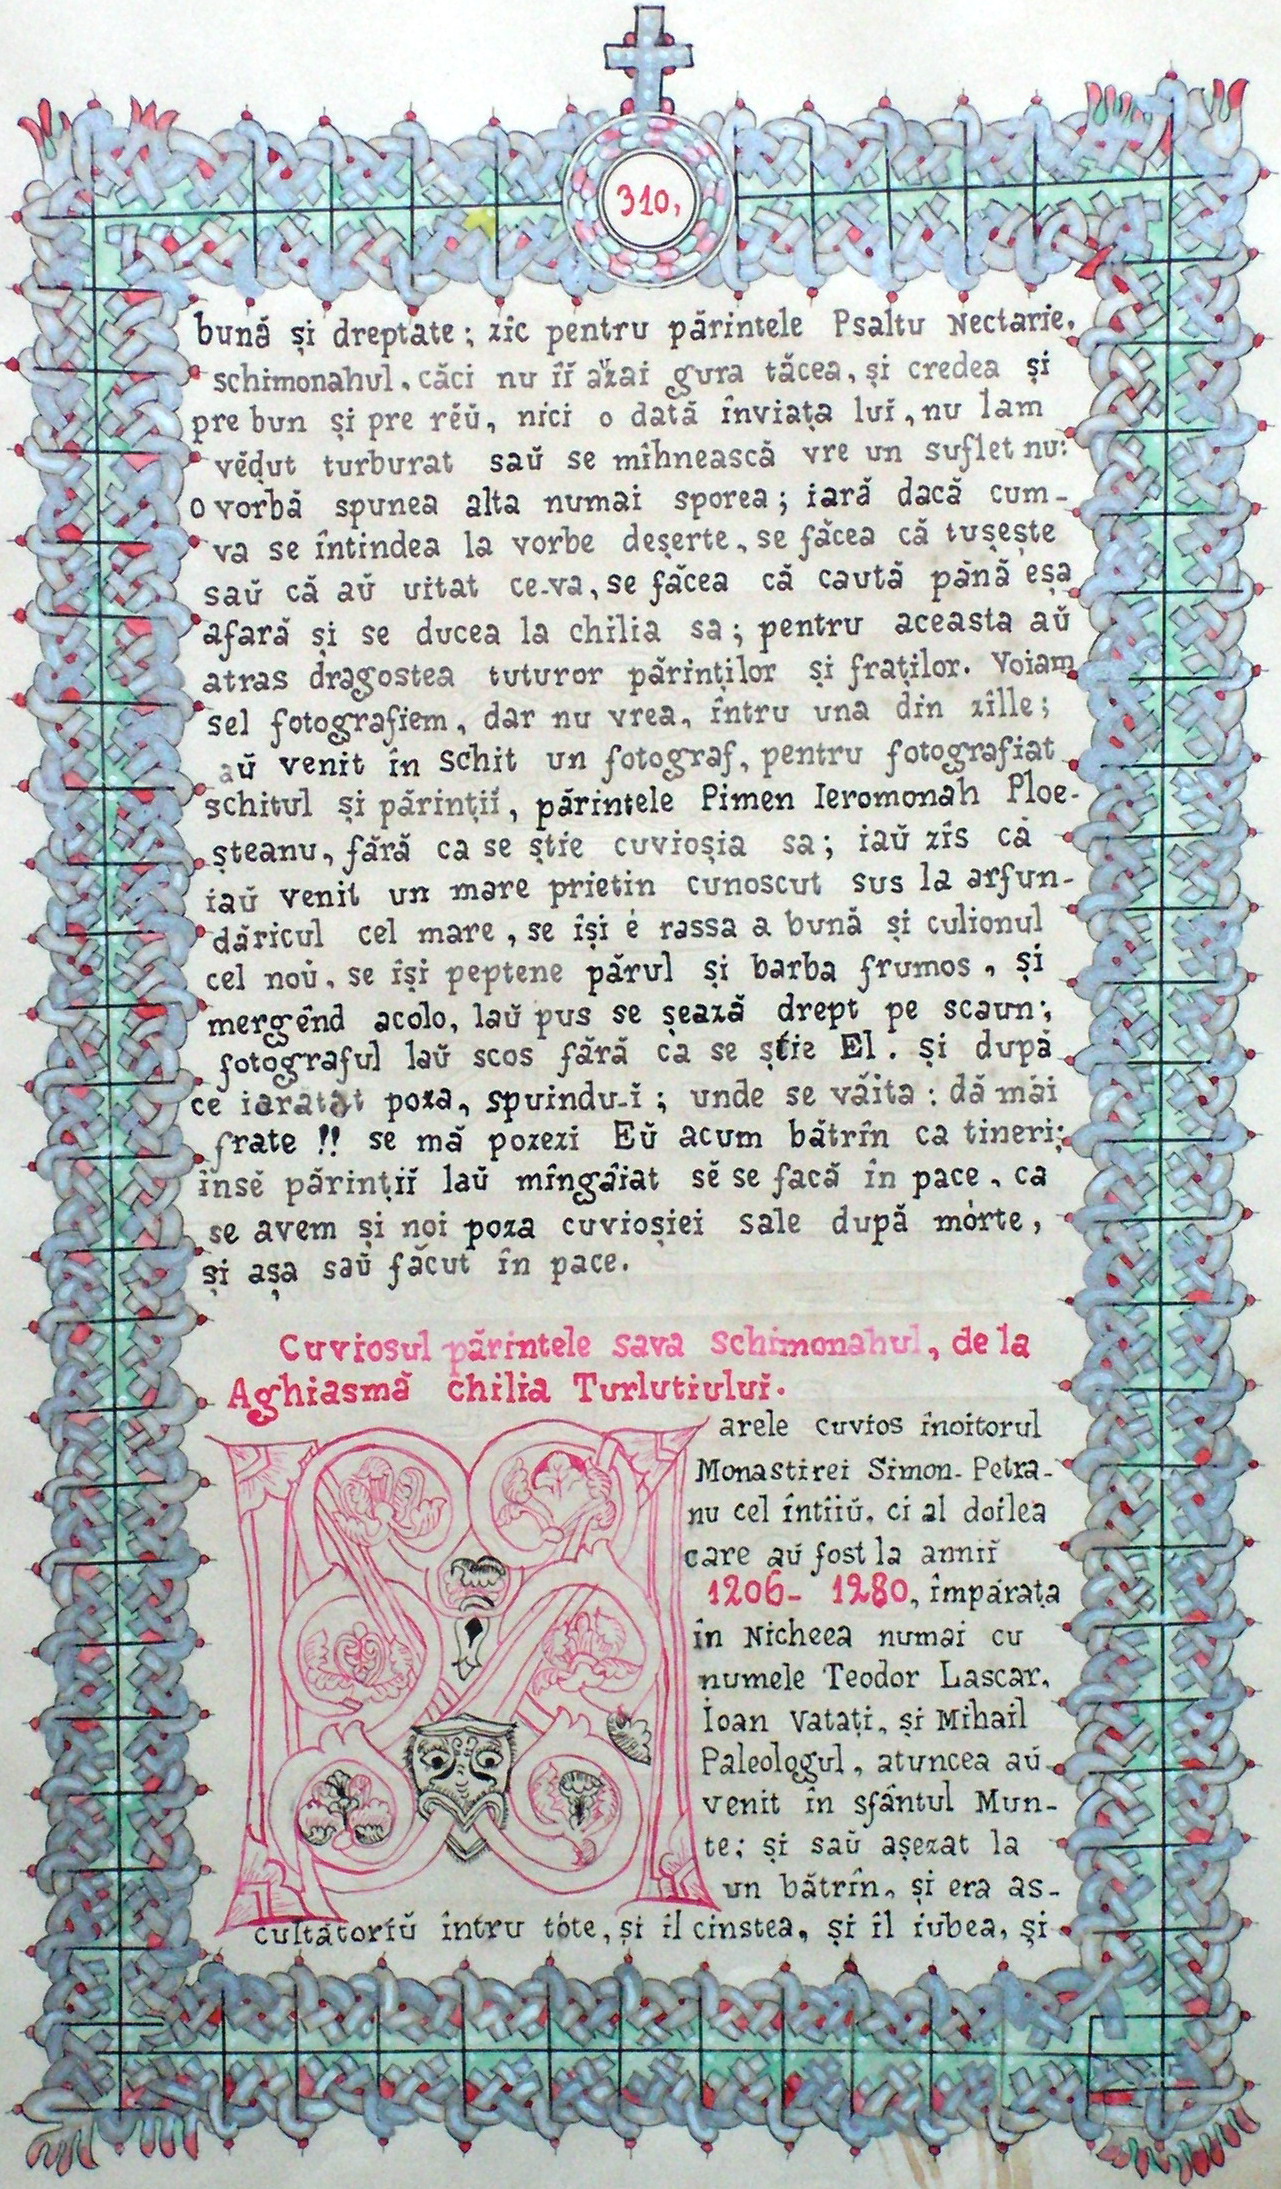 310,
bună și dreptate; zîc pentru părintele Psaltu Nectarie,
schimonahul, căci nu îĭ gura tăcea, și credea și
pre bun și pre rĕŭ, nici o dată înviața luĭ, nu lam
vĕḍut turburat saŭ se mîhnească vre un suflet nu:
o vorbă spunea alta numai sporea; iară dacă cum-
va se întindea la vorbe deșerte, se făcea că tușește
saŭ că aŭ uitat ce-va, se făcea că caută până eșa
afară și se ducea la chilia sa; pentru aceasta aŭ
atras dragostea tuturor părinților și fraților. Voiam
sel fotografiem, dar nu vrea, întru una din zîlle;
aŭ venit în Schit un fotograf, pentru fotografiat
schitul și părințiĭ, părintele Pimen Ieromonah Ploe-
șteanu, fără ca se știe cuvioșia sa; iaŭ zîs că
iaŭ venit un mare prietin cunoscut sus la arfun-
dăricul cel mare, se își é rassa a bună și culionul
cel noŭ, se își peptene părul și barba frumos, și
mergênd acolo, laŭ pus se șează drept pe scaun;
fotograful laŭ scos fără ca se știe El. și după
ce iaratat poza, spuindu-ĭ; unde se văita: dă măi
frate !! se mă pozezi Eŭ acum bătrîn ca tineri;
însĕ părințiĭ laŭ mîngâiat sĕ se facă în pace, ca
se avem și noi poza cuvioșiei sale după mórte,
și așa saŭ făcut în pace.
Cuviosul părintele sava schimonahul, de la
Aghiasmă chilia Turlutiuluĭ.
M
arele cuvios înoitorul
Monastirei Simon-Petra-
nu cel întîiŭ, ci al doilea
care aŭ fost la anniĭ
1206- 1280, împărața
în Nicheea numai cu
numele Teodor Lascar,
Ioan Vatați, și Mihail
Paleologul, atuncea aŭ
venit în sfântul Mun-
te; și saŭ așezat la
un bătrîn, și era as-
cultătoriŭ întru tóte, și îl cinstea, și îl iubea, și